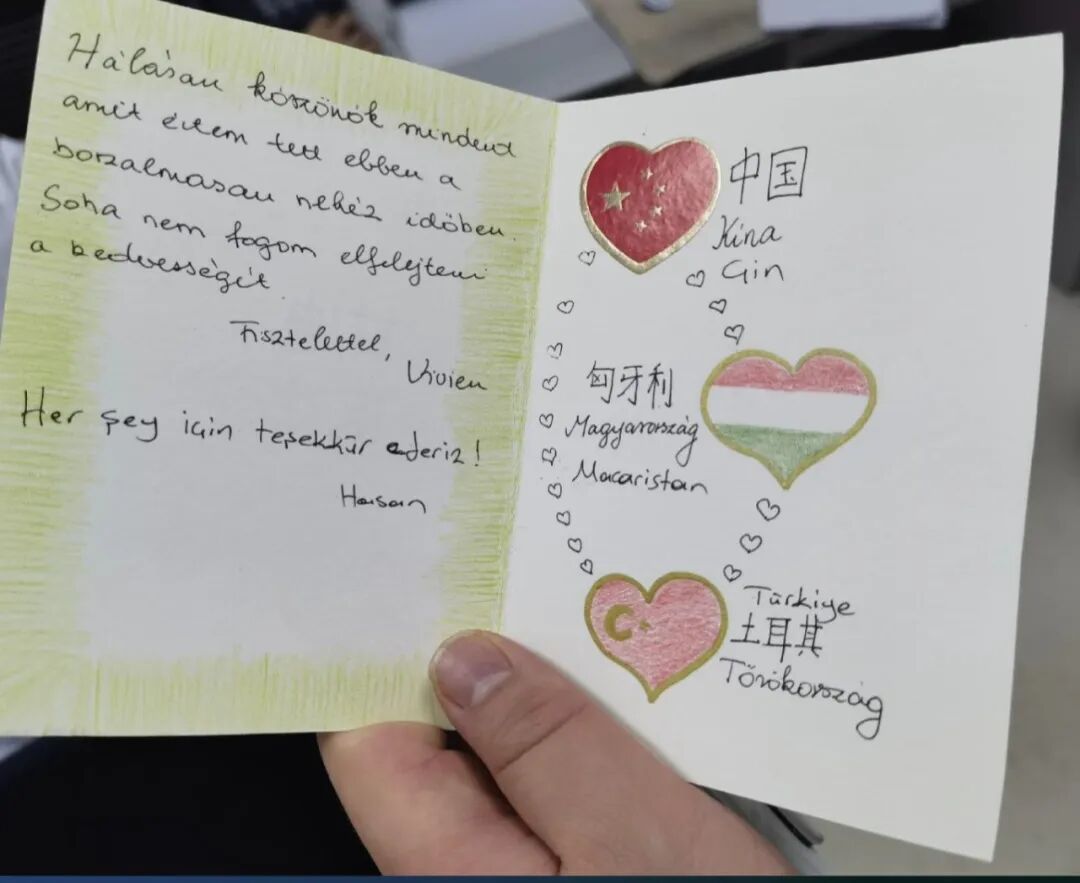 Hálásan köszönök mindent
amit értem tett ebben a
borzalmasan nehéz időben.
Soha nem fogom elfelejteni
a kedvességét
Tisztelettel,
Vivien
Her şey için teşekkür ederiz!
Hasan
中国
Kína
Çin
匈牙利
Magyarország
Macaristan
Türkiye
土耳其
Törökország